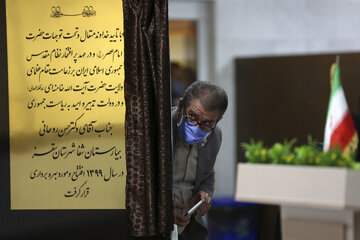 با تایید خداوند متعال و تحت توجهات حضرت
امام عصر (عج) و در عهد پرافتخار نظام مقدس
جمهوری اسلامی ایران بر زعامت مقام عظمای
ولایت حضرت آیت الله خامنه ای
و در دولت تدبیر و امید به ریاست جمهوری
جناب آقای دکتر حسن روحانی
بیمارستان شفا شهرستان سقز
در سال ۱۳۹۹ افتتاح و مورد بهره برداری
قرار گرفت